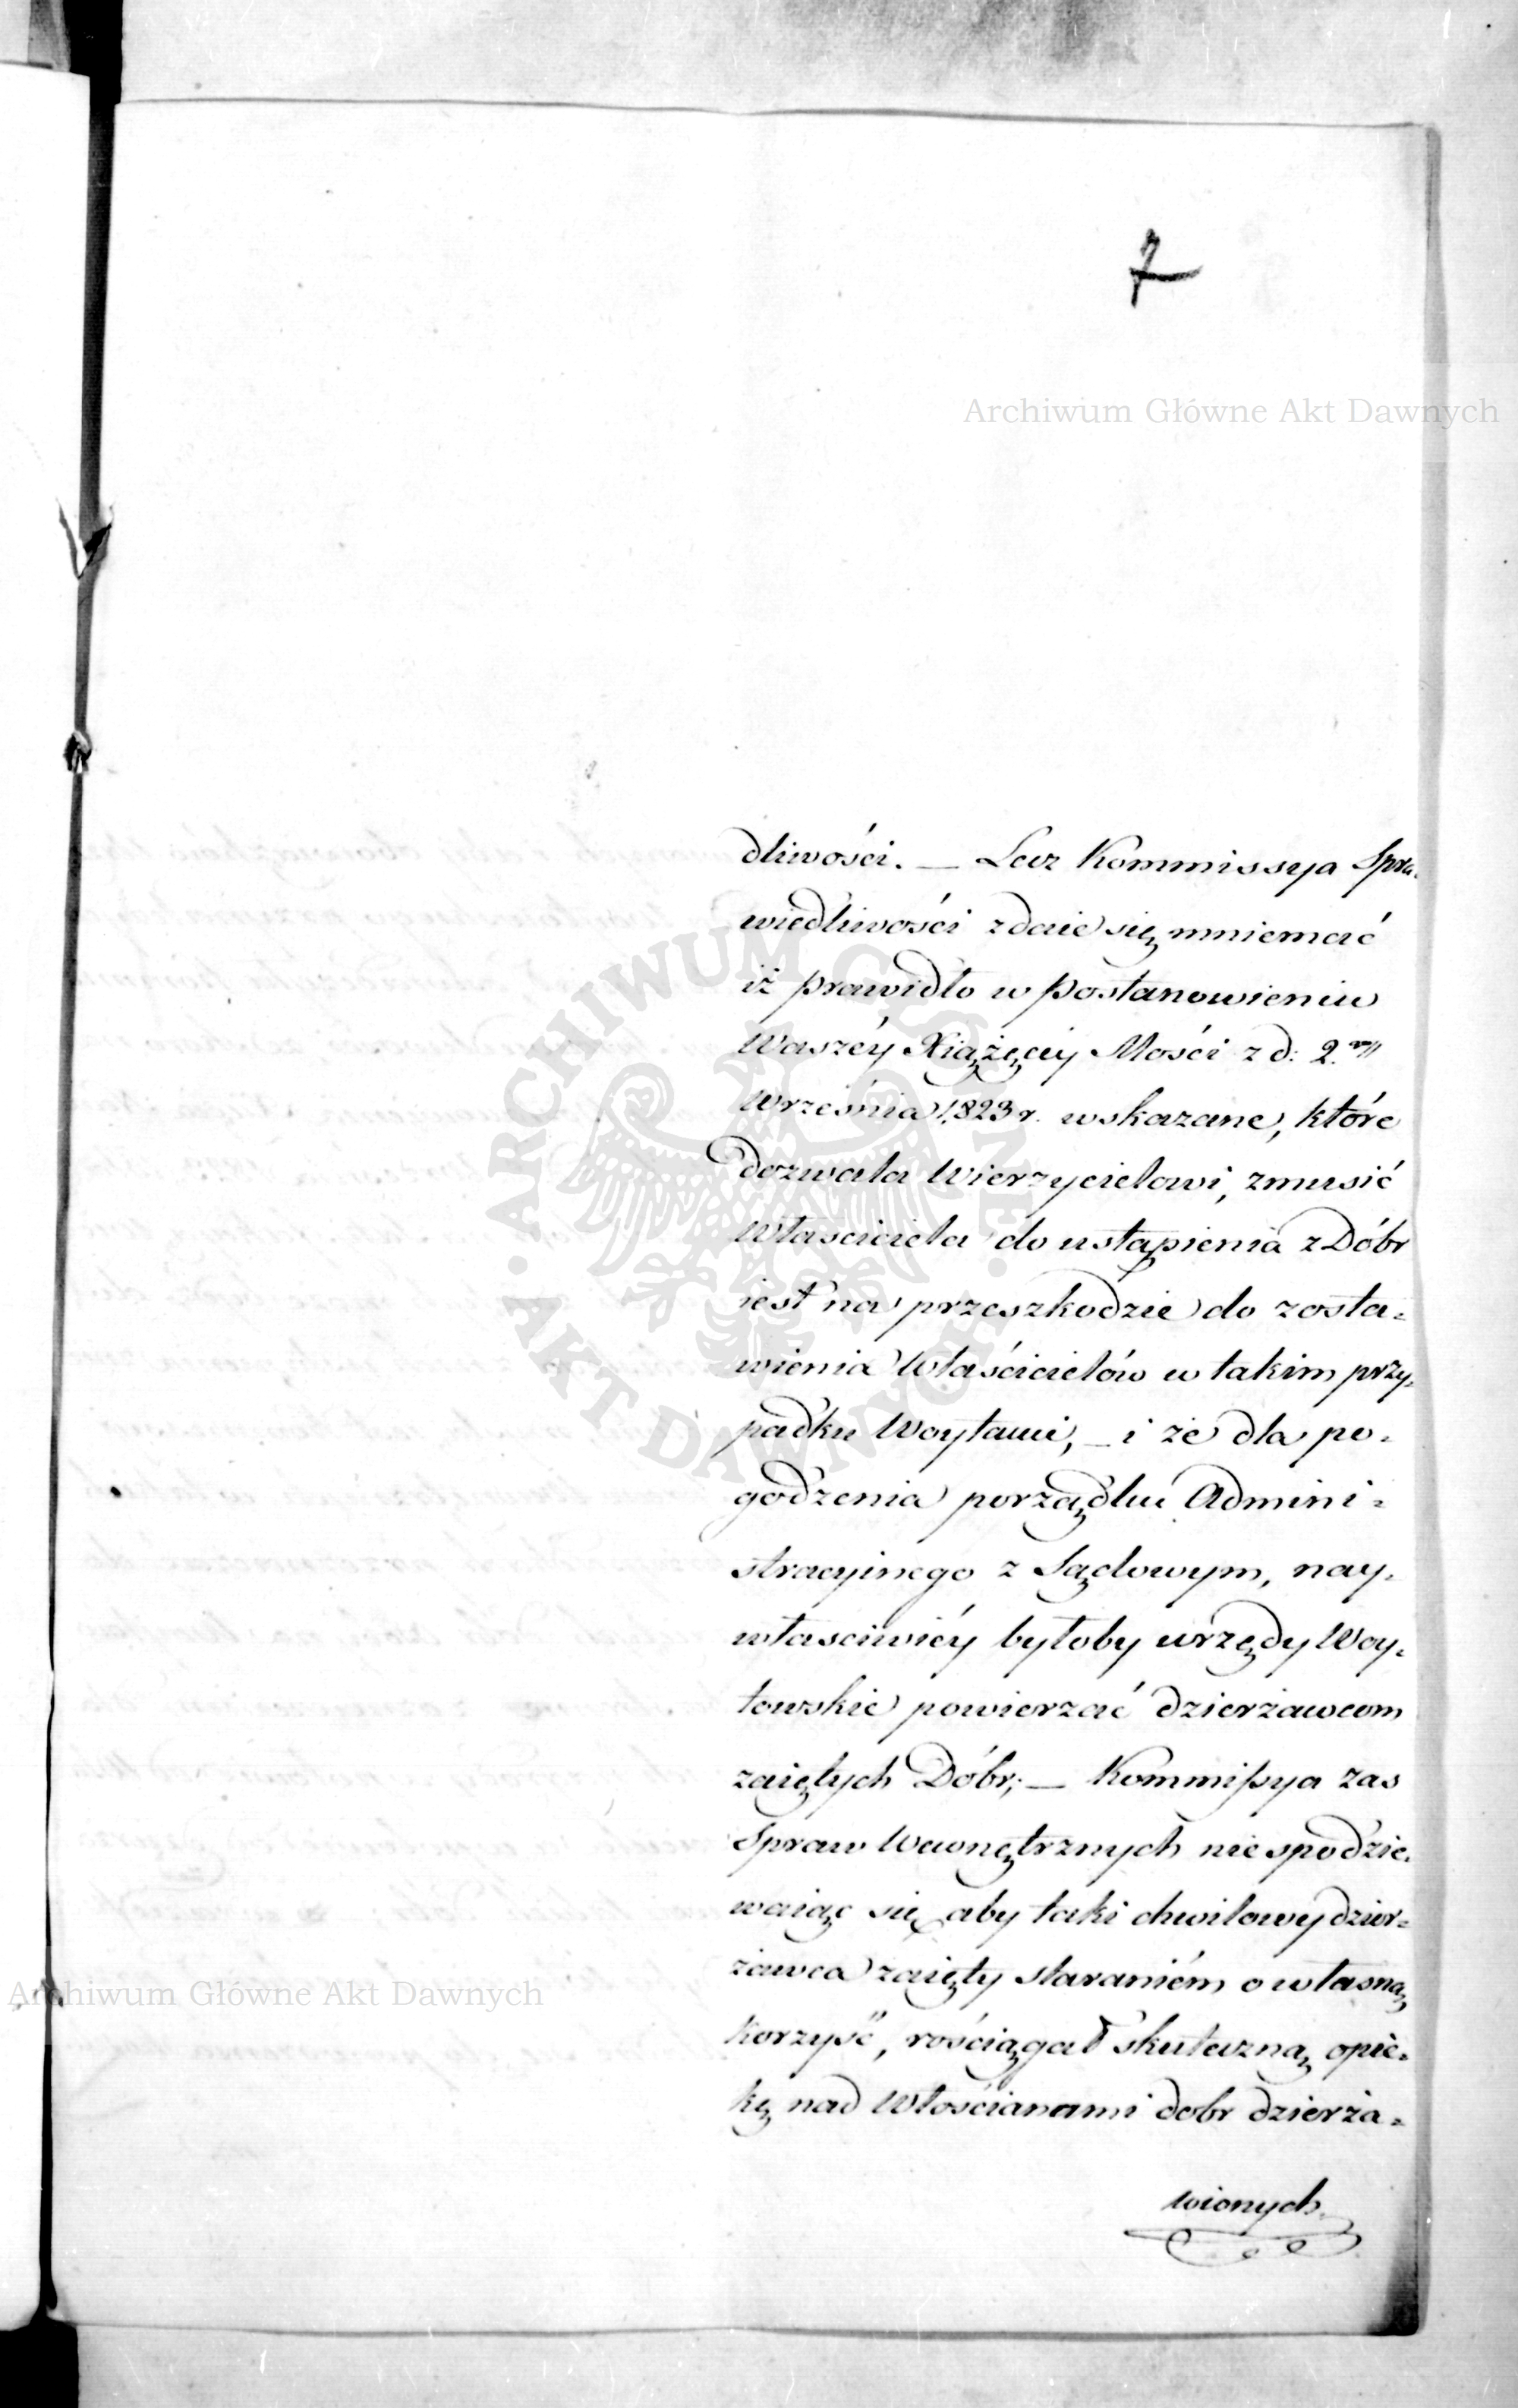 7
Archiwum Główne Akt Dawnych
dliwości. — Lecz Kommissya Spra-
wiedliwości zdaie się mniemać
iż prawidło w postanowieniu
Waszéy Xiążęcéy Mości z d: 2.go
Września 1823 r. wskazane, które
dozwala Wierzycielowi, zmusić
Właściciela do ustąpienia z Dóbr
iest na przeszkodzie do zosta-
wienia Właścicielów w takim przy-
padku Woytami, — i że dla po-
godzenia porządku Admini-
stracyinego z Sądowym, nay-
właściwiéy byłoby urzędy Woy-
towskie powierzać dzierżawcom
zaiętych Dóbr; — Kommissya zas
Spraw Wewnętrznych nie spodzie-
waiąc się aby taki chwilowy dzier-
żawca zaięty staraniém o własną
korzyść, rościągał skuteczną opie-
kę nad Włościanami dobr dzierża-
wionych
ARCHIWUM GŁÓWNE AKT DAWNYCH
Archiwum Główne Akt Dawnych